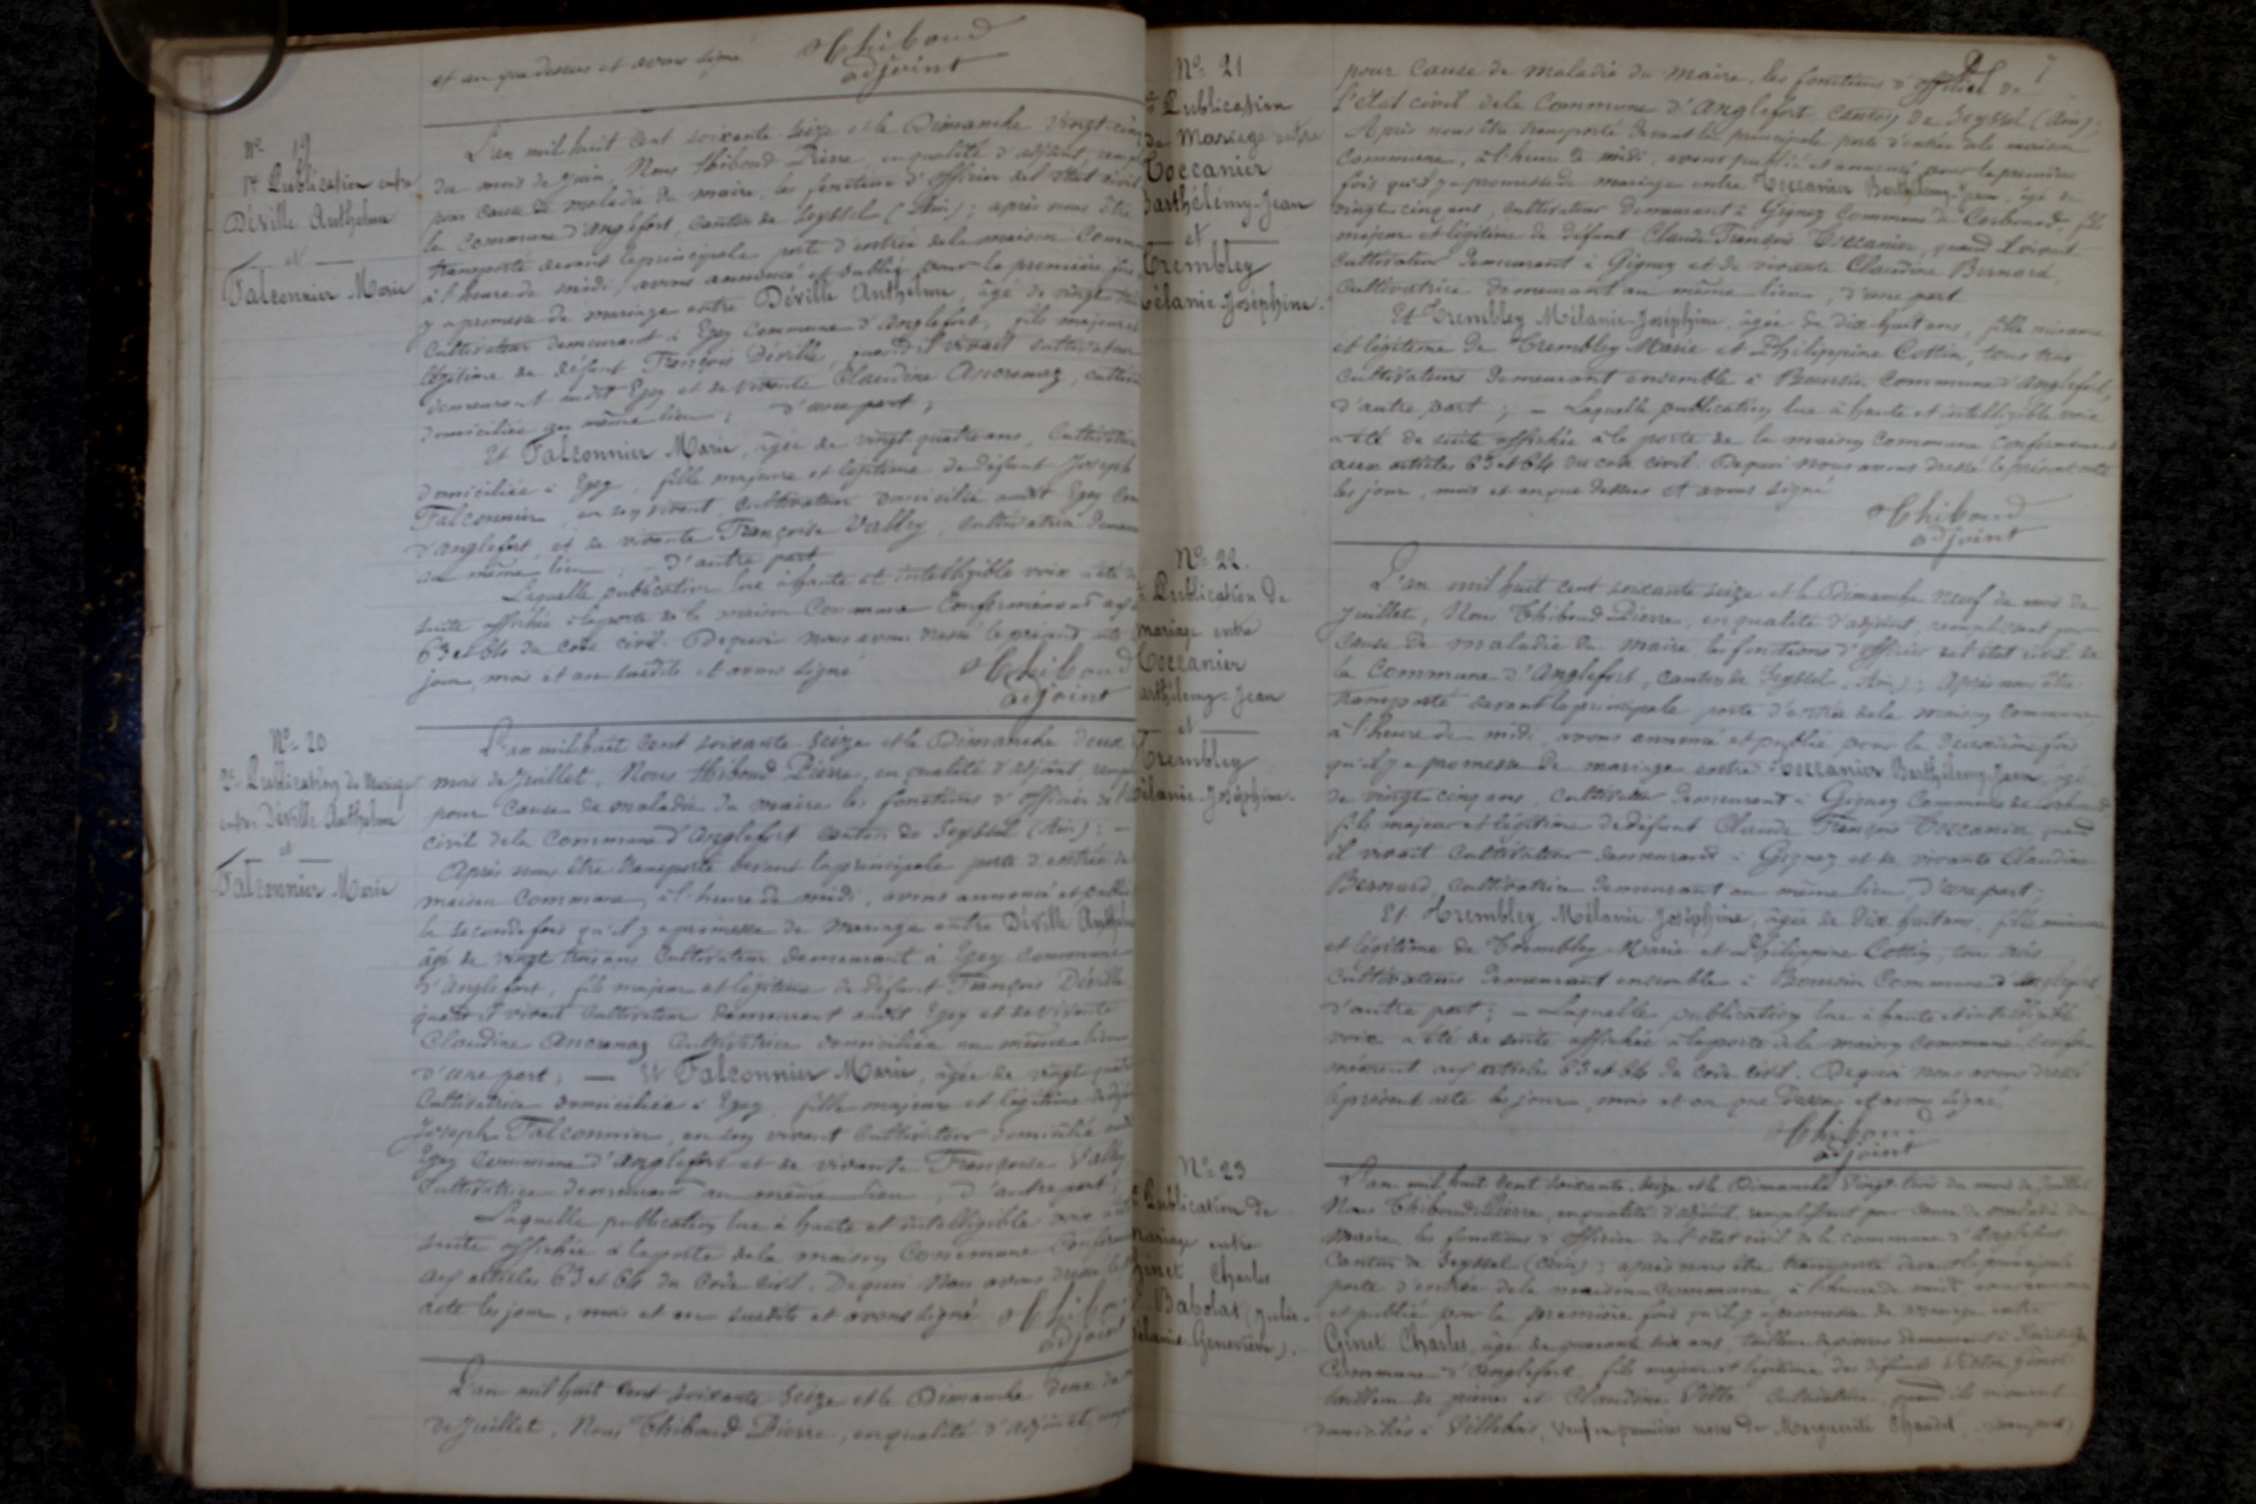 et an que dessus et avons signé Thiboud
adjoint
N° 19
1re Publication entre
Déville Anthelme
et
Falconnier Marie
L'an mil huit cent soixante seize et le Dimanche vingt-cinq
du mois de juin, Nous Thiboud Pierre, en qualité d'adjoint,
pour cause de maladie du maire, les fonctions d'officier de l'état civil
la Commune d'Anglefort, canton de Seyssel (Ain); après nous être
transporté devant la principale porte d'entrée de la maison Commune
à l'heure de midi, avons annoncé et publié pour la première fois
y a promesse de mariage entre Déville Anthelme, âgé de vingt
Cultivateur demeurant à Egey Commune d'Anglefort, fils majeur et
légitime de défunt François Déville, quand il vivait cultivateur
demeurant audit Egey et de vivante Claudine Ancrenaz,
domiciliée au même lieu; d'une part;
Et Falconnier Marie, âgée de vingt quatre ans, Cultivatrice
domiciliée à Egey, fille majeure et légitime de défunt Joseph
Falconnier, en son vivant, Cultivateur domicilié audit Egey
d'Anglefort, et de vivante Françoise Valley, Cultivatrice
au même lieu, d'autre part
Laquelle publication lue à haute et intelligible voix a été de
suite affichée à la porte de la maison Commune Conformément aux
63 et 64 du code civil. De quoi nous avons dressé le présent acte
jour, mois et an susdits et avons signé Thiboud
adjoint
N° 20
2e Publication de Mariage
entre Déville Anthelme
et
Falconnier Marie
L'an mil huit cent soixante-seize et le Dimanche deux
mois de Juillet, Nous Thiboud Pierre, en qualité d'adjoint,
pour cause de maladie du maire les fonctions d'officier de l'état
civil de la Commune d'Anglefort canton de Seyssel (Ain): —
Après nous être transporté devant la principale porte d'entrée de
maison Commune, à l'heure de midi, avons annoncé et publié
la seconde fois qu'il y a promesse de mariage entre Déville Anthelme
âgé de vingt trois ans Cultivateur demeurant à Egey commune
d'Anglefort, fils majeur et légitime de défunt François Déville
quand il vivait Cultivateur demeurant audit Egey et de vivante
Claudine Ancrenaz Cultivatrice domiciliée au même lieu
d'une part; — Et Falconnier Marie, âgée de vingt quatre
Cultivatrice domiciliée à Egey, fille majeure et légitime de défunt
Joseph Falconnier, en son vivant Cultivateur domicilié audit
Egey Commune d'Anglefort et de vivante Françoise Valley
Cultivatrice demeurant au même lieu, d'autre part;
Laquelle publication lue à haute et intelligible voix a été
suite affichée à la porte de la maison Commune
aux articles 63 et 64 du Code civil. De quoi Nous avons dressé
acte les jour, mois et an susdits et avons signé Thiboud
adjoint
L'an mil huit cent soixante seize et le Dimanche deux du
de Juillet, Nous Thiboud Pierre, en qualité d'adjoint
N° 21
Publication
de Mariage entre
Toccanier
Barthélémy-Jean
et
Trembley
Mélanie-Joséphine.
pour cause de maladie du maire, les fonctions d'officier de
l'état civil de la Commune d'Anglefort canton de Seyssel (Ain);
Après nous être transporté devant la principale porte d'entrée de la maison
Commune, à l'heure de midi, avons publié et annoncé pour la première
fois qu'il y a promesse de mariage entre Toccanier Barthélemy-Jean, âgé de
vingt-cinq ans, cultivateur demeurant à Gignez Commune de Corbonod, fils
majeur et légitime de défunt Claude François Toccanier, quand il vivait
Cultivateur demeurant à Gignez et de vivante Claudine Bernard,
Cultivatrice demeurant au même lieu, d'une part
Et Trembley Mélanie-Joséphine, âgée de dix-huit ans, fille mineure
et légitime de Trembley Marie et Philippine Cottin, tous trois
Cultivateurs demeurant ensemble à Boursin Commune d'Anglefort,
d'autre part; — Laquelle publication lue à haute et intelligible voix
a été de suite affichée à la porte de la maison Commune Conformément
aux articles 63 et 64 du code civil. De quoi nous avons dressé le présent acte
les jour, mois et an que dessus et avons signé
Thiboud
adjoint
N° 22.
Publication de
mariage entre
Toccanier
Barthélemy-Jean
et
Trembley
Mélanie-Joséphine.
L'an mil huit cent soixante seize et le Dimanche neuf du mois de
Juillet, Nous Thiboud Pierre, en qualité d'adjoint, remplissant pour
cause de maladie du maire les fonctions d'officier de l'état civil de
la Commune d'Anglefort, canton de Seyssel (Ain); Après nous être
transporté devant la principale porte d'entrée de la maison commune
à l'heure de midi avons annoncé et publié pour la deuxième fois
qu'il y a promesse de mariage entre Toccanier Barthélemy-Jean, âgé
de vingt-cinq ans, Cultivateur demeurant à Gignez Commune de Corbonod
fils majeur et légitime de défunt Claude François Toccanier, quand
il vivait Cultivateur demeurant à Gignez et de vivante Claudine
Bernard, Cultivatrice demeurant au même lieu, d'une part;
Et Trembley Mélanie-Joséphine, âgée de dix-huit ans, fille mineure
et légitime de Trembley Marie et Philippine Cottin, tous trois
Cultivateurs demeurant ensemble à Boursin Commune d'Anglefort
d'autre part; — Laquelle publication lue à haute et intelligible
voix a été de suite affichée à la porte de la maison Commune Confor
mément aux articles 63 et 64 du code civil. De quoi nous avons dressé
le présent acte les jour, mois et an que dessus et avons signé
Thiboud
adjoint
N° 23
Publication de
mariage entre
Ginet Charles
Babolat (Julie-
Mélanie-Geneviève).
L'an mil huit cent soixante-seize et le Dimanche vingt-trois du mois de Juillet
Nous Thiboud Pierre, en qualité d'adjoint, remplissant pour cause de maladie du
Maire les fonctions d'officier de l'état civil de la commune d'Anglefort
Canton de Seyssel (Ain); après nous être transporté devant la principale
porte d'entrée de la maison Commune, à l'heure de midi, avons annoncé
et publié pour la première fois qu'il y a promesse de mariage entre
Ginet Charles, âgé de quarante six ans, tailleur de pierres demeurant à
Commune d'Anglefort fils majeur et légitime des défunts Ginet
tailleur de pierres et Claudine Cultivatrice, quand ils vivaient
domiciliés à Villebois, veuf en premières noces de Marguerite